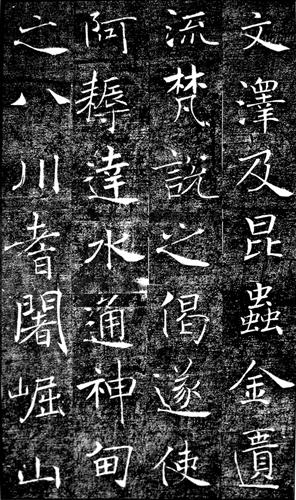 文澤及昆蟲金匱
流梵說之偈遂使
阿耨達水通神甸
之八川耆闍崛山